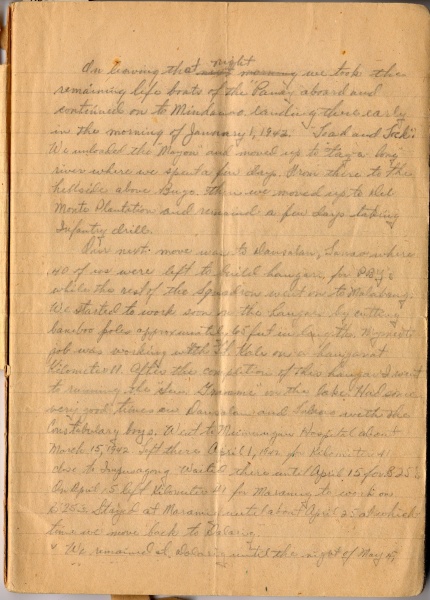 On leaving that night we took the
remaining life boats of the "Panay" aboard and
continued on to Mindanao landing there early
in the morning of January 1, 1942
We unloaded the "Mayon" and moved up to
river where we spent a few days. From there to the
hillside above Bugo then we moved up to Del
Monte Plantation and remained a few days taking
Infantry drill.
Our next move was to Dansalan, Lanao where
40 of us were left to build hangars for PBY's
while the rest of the Squadron went on to Malabang.
We started to work soon on the hangars by cutting
bamboo poles approximately 45 feet in length. My next
job was working with on a hangar at
Kilometer 11. After the completion of this hangar I went
to running the on the lake. Had some
very good times in Dansalan and with the
Constabulary boys. Went to Hospital about
March 15, 1942 left there April 1, 1942 for Kilometer 41
close to Waited there until April 15 for B25's
On April 15 left Kilometer 41 for Maramag to work on
B25's Stayed at Maramag until about April 25 at which
time we move back to
We remained until the night of May